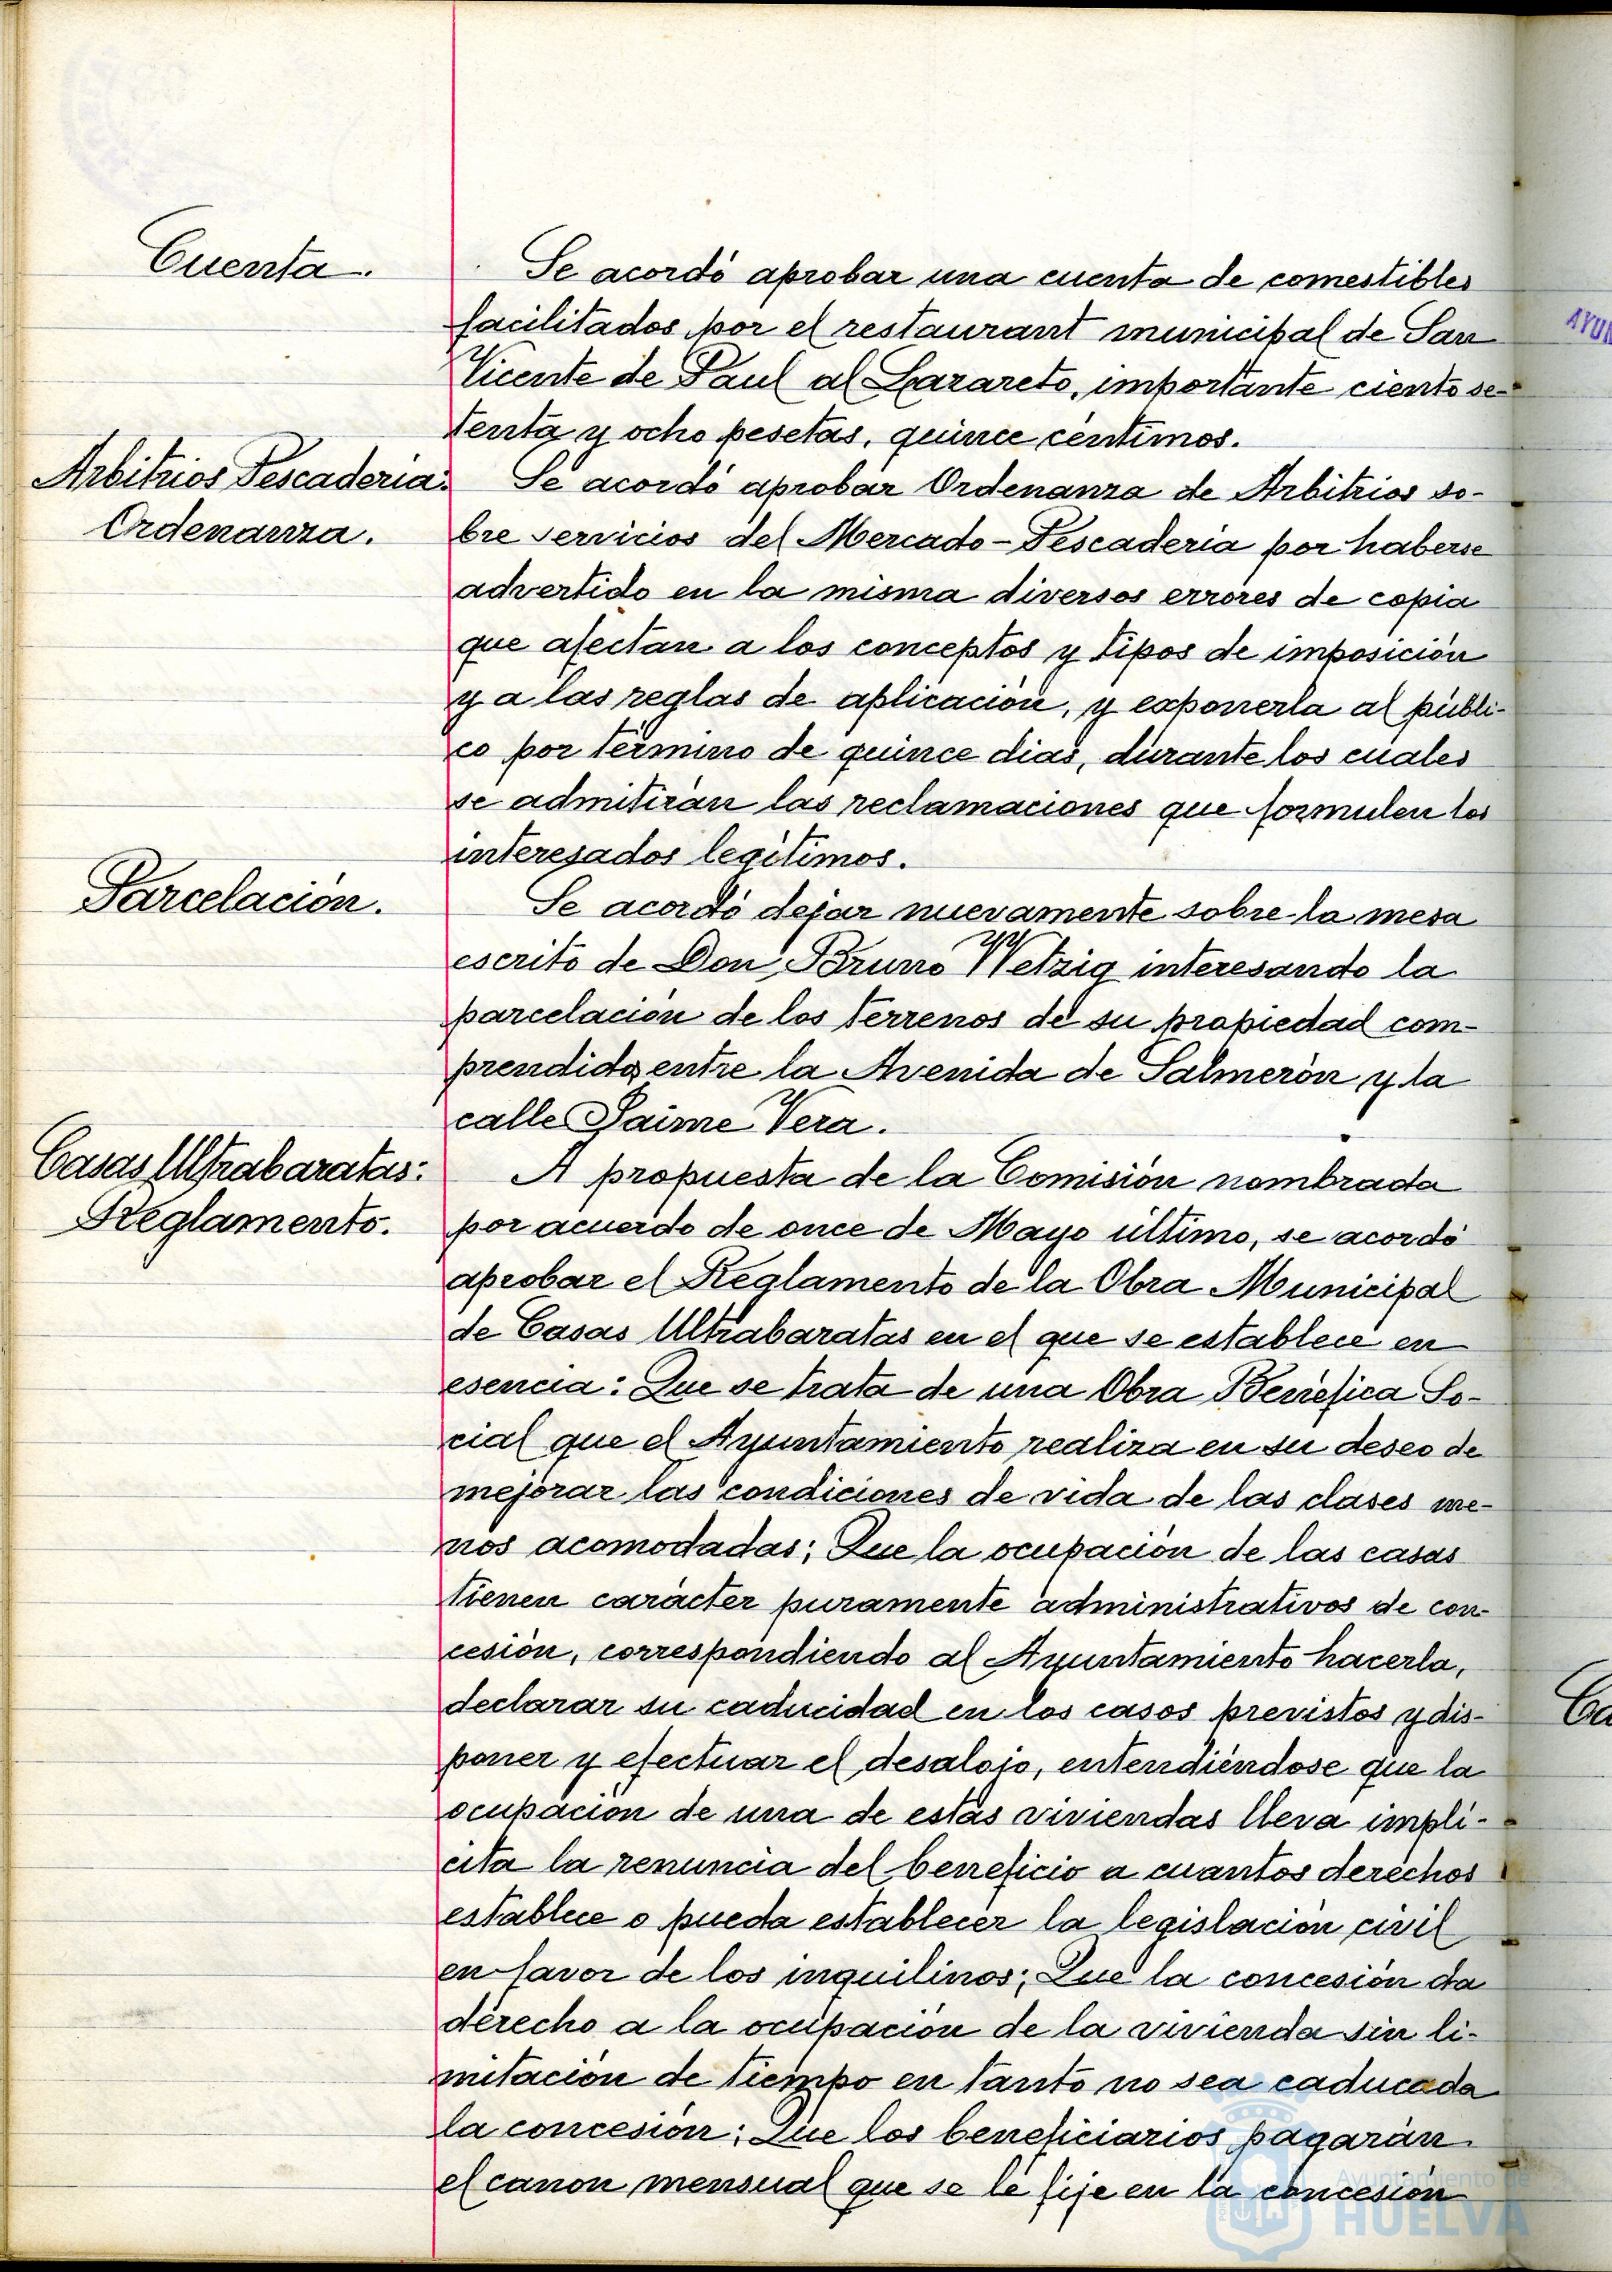 Cuenta.
Se acordó aprobar una cuenta de comestibles
facilitados por el restaurant municipal de San
Vicente de Paul al Lazareto, importante ciento se-
tenta y ocho pesetas, quince céntimos.
Arbitrios Pescaderia:
Ordenanza.
Se acordó aprobar Ordenanza de Arbitrios so-
bre servicios del Mercado-Pescaderia por haberse
advertido en la misma diversos errores de copia
que afectan a los conceptos y tipos de imposición
y a las reglas de aplicación, y exponerla al públi-
co por término de quince dias, durante los cuales
se admitirán las reclamaciones que formulen los
interesados legítimos.
Parcelación.
Se acordó dejar nuevamente sobre la mesa
escrito de Don Bruno Wetzig interesando la
parcelación de los terrenos de su propiedad com-
prendida entre la Avenida de Salmerón y la
calle Jaime Vera.
Casas Ultrabaratas:
Reglamento.
A propuesta de la Comisión nombrada
por acuerdo de once de Mayo último, se acordó
aprobar el Reglamento de la Obra Municipal
de Casas Ultrabaratas en el que se establece en
esencia: Que se trata de una Obra Benéfica So-
cial que el Ayuntamiento realiza en su deseo de
mejorar las condiciones de vida de las clases me-
nos acomodadas; Que la ocupación de las casas
tienen carácter puramente administrativos de con-
cesión, correspondiendo al Ayuntamiento hacerla,
declarar su caducidad en los casos previstos y dis-
poner y efectuar el desalojo, entendiéndose que la
ocupación de una de estas viviendas lleva implí-
cita la renuncia del beneficio a cuantos derechos
establece o pueda establecer la legislación civil
en favor de los inquilinos; Que la concesión da
derecho a la ocupación de la vivienda sin li-
mitación de tiempo en tanto no sea caducada
la concesión; Que los beneficiarios pagarán
el canon mensual que se le fije en la concesión
Ayuntamiento de
HUELVA
AYUN
Ca